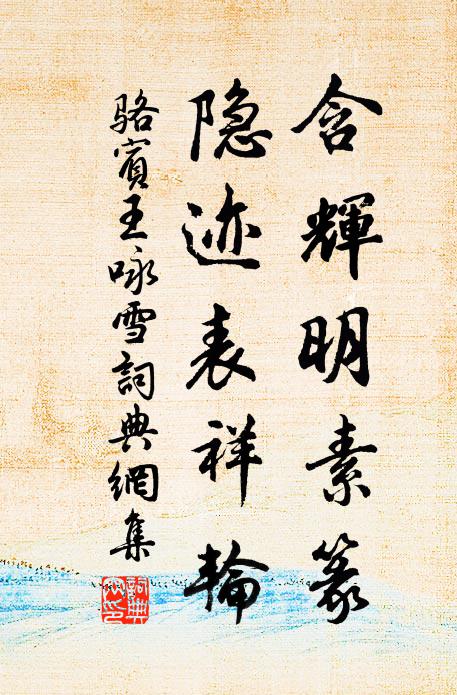 含輝明素篆
隐迹表祥輪
駱賓王咏雪詞典網集